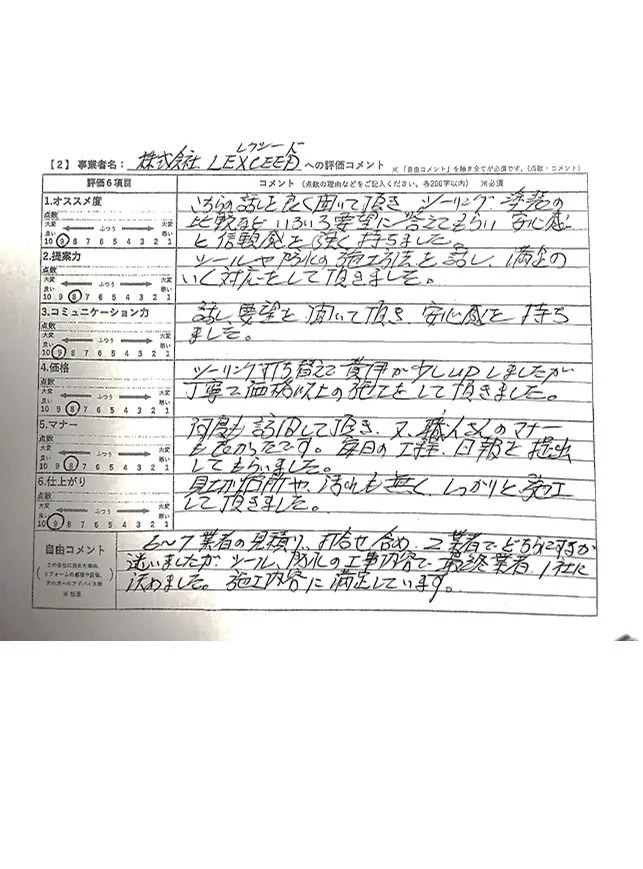 レクシード
【2】事業者名: 株式会社 LEXCEED への評価コメント ※「自由コメント」を除き全てが必須です。(点数・コメント)
評価6項目 コメント (点数の理由などをご記入ください。各200字以内) ※必須
1.オススメ度
点数
大変良い ふつう 大変悪い
10 9 8 7 6 5 4 3 2 1
こちらの話しを良く聞いて頂き シーリング 塗装の
比較など いろいろ要望に答えてもらい 安心感
と信頼感を強く持ちました。
2.提案力
点数
大変良い ふつう 大変悪い
10 9 8 7 6 5 4 3 2 1
シールや防水の施工方法を話し、満足の
いく対応をして頂きました。
3.コミュニケーション力
点数
大変良い ふつう 大変悪い
10 9 8 7 6 5 4 3 2 1
話し要望を聞いて頂き 安心感を持ち
ました。
4.価格
点数
大変良い ふつう 大変悪い
10 9 8 7 6 5 4 3 2 1
シーリング打ち替えで費用が少しUPしましたが
丁寧で価格以上の施工をして頂きました。
5.マナー
点数
大変良い ふつう 大変悪い
10 9 8 7 6 5 4 3 2 1
何度も訪問して頂き、又、職人さんのマナー
も良かったです。毎日の工程、日報を提出
してもらいました。
6.仕上がり
点数
大変良い ふつう 大変悪い
10 9 8 7 6 5 4 3 2 1
汚れも無く、しっかりと施工
して頂きました。
自由コメント
この会社に決めた理由、
リフォームの感想や反省、
次の方へのアドバイス等
※任意
6~7業者の見積り、打合せ含め、2業者でどちらにするか
迷いましたが シール、防水の工事内容で最終業者、1社に
決めました。施工内容に満足しています。